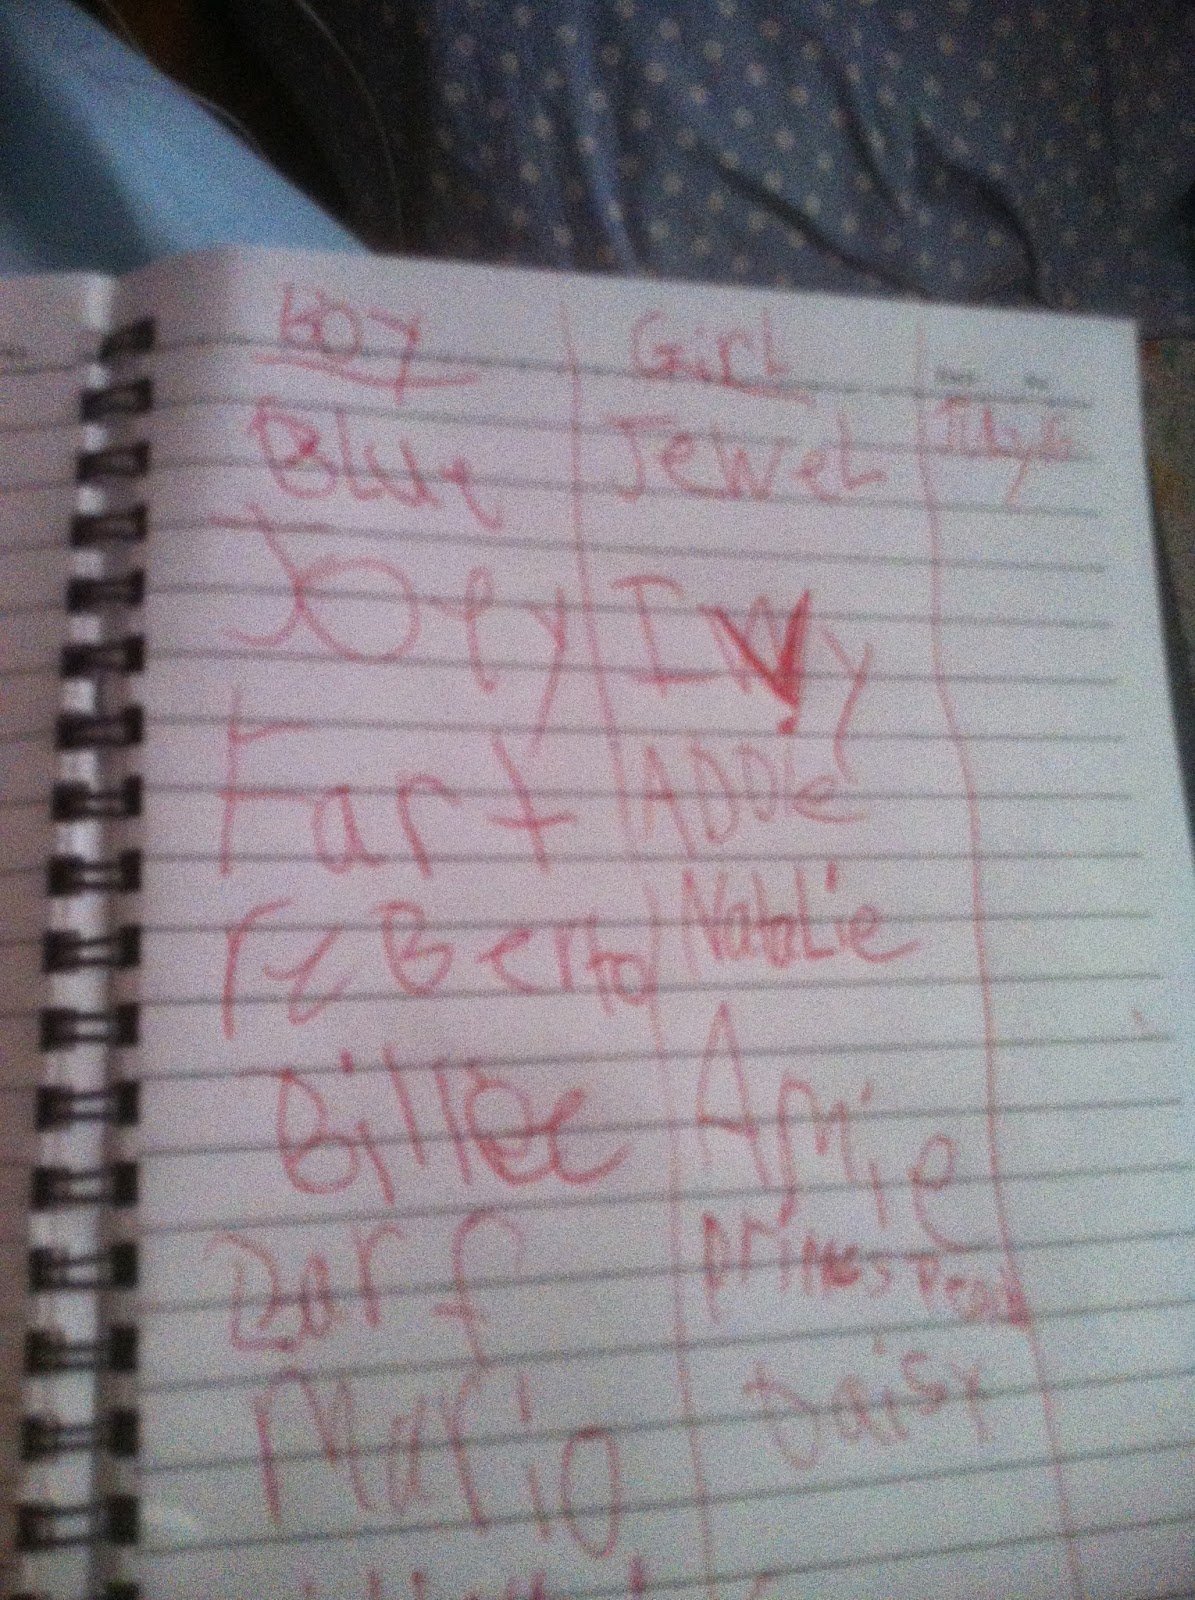 boy Girl
Blue Jewel
Joey Ivy
Fart ADDie
reBerto Natalie
Billee Amie
Barf princes Peach
Mario Daisy